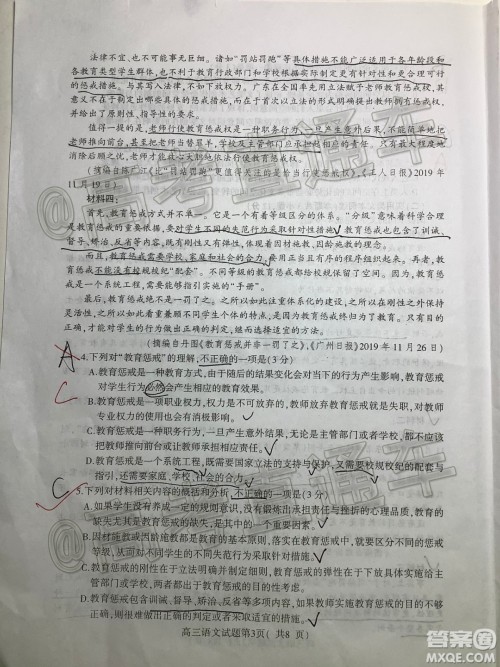 法律不宜、也不可能事无巨细。诸如“罚站罚跑”等具体措施不能广泛适用于各年龄段和
各教育类型学生群体,也不利于教育行政部门和学校根据实际制定更有针对性和更合理可行
的惩戒措施。与其写入法律,不如赋权。广东在全国率先用立法赋予老师教育惩戒权,其
意义不在于制定出哪些具体的惩戒措施,而在于首次以法治的形式明确提出教师拥有惩戒权,
并给出了原则性、指导性的要求。
值得一提的是,老师行使教育惩戒权是一种职务行为,一旦产生意外后果,不能简单地把
老师推向前台,甚至让老师当替罪羊,学校及主管部门应承担起相应的责任。只有最大程度地
消除后顾之忧,老师才能放心大胆地依法依规行使教育惩戒权。
11月19日)
材料四:
首先,教育惩戒方式并不单一,它有一个有等级区分的体系。“分级”意味着科学合理
是教育惩戒的重要依据,要对学生不同的失范行为采取针对性措施。教育惩戒也包含了训诫、
督导、矫治、反省等内容,既明刚性、又存温情,体现着因材施教、因阶段施教的原则。
而且,教育惩戒需要学校、家庭和社会的合力,不同措施且应当有序的程序组织起来。再者,教
育惩戒不能没有校规校纪“配套”。不同等级的教育惩戒都给校规校纪保留了空间。因为,教
育惩戒是一个系统工程,既需要宏观指导,也需要能够指引实施的“手册”。
最后,教育惩戒绝不是一罚了之。我们如此注重体系化的建设,在刚性之外保持一定弹性,
(摘编自丹图《教育惩戒并非一罚了之》,《广州日报》2019年11月26日)
A
4.下列对“教育惩戒”的理解,不正确的一项是(3分)
A.教育惩戒是一种教育方式,由于随后的结果变化会对当下的行为产生影响,教育惩戒
对学生行为必然会产生相应的教育效果。
C
B.教育惩戒是一项职业权力,权力是不可放弃的,教师放弃教育惩戒就是失职,对教师
专业权力的使用也会有消极影响。
C.教育惩戒是一种职务行为,一旦发生意外后果,无论是主管部门或者学校,都不应该
把教师推向前台或让教师承担相应责任。
D.教育惩戒是一个系统工程,既需要国家立法的支持与保护,又需要校规校纪的配套与
指引,还需要家庭、学校、社会的合力。
C
5.下列对材料相关内容的概括和分析,不正确的一项是(3分)
A.如果学生没有养成一定的规则意识,没有锻炼出承担责任与挫折的心理品质,教育的
缺失尤其是教育惩戒的缺失,是其中一个重要原因。
B.因材施教、因阶段施教都是教育的基本原则,落实在教育惩戒中,就应区分不同的惩戒
等级,面对学生不同的失范行为采取针对性措施。
C.教育惩戒的刚性在于立法明确和制定细则,教育惩戒的弹性在于下放具体实施措施
给教育主管部门或学校,两者都出于教育惩戒的目的性考虑。
D.教育惩戒包含训诫、督导、矫治、反省等多项内容,如果我们实施教育惩戒的目的不
明、原则不清,很难做出正确的行动,有时甚至会产生意外的后果。
高三语文试题第3页(共8页)
答案圈
MXQE.COM